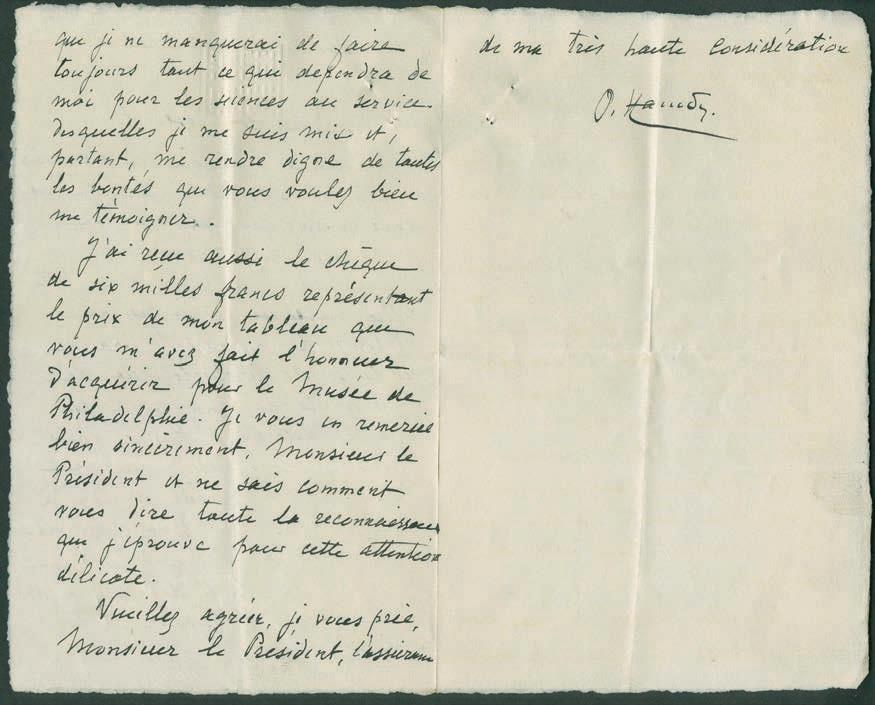 que je ne manquerai de faire
toujours tout ce qui dépendra de
moi pour les sciences au service
desquelles je me suis mis et,
partant, me rendre digne de toutes
les bontés que vous voulez bien
me témoigner.
J'ai reçu aussi le chèque
de six milles francs représentant
le prix de mon tableau que
vous m'avez fait l'honneur
d'acquérir pour le Musée de
Philadelphie. Je vous en remercie
bien sincèrement, Monsieur le
Président et ne sais comment
vous dire toute la reconnaissance
que j'éprouve pour cette attention
délicate.
Veuillez agréer, je vous prie,
Monsieur le Président, l'assurance
de ma très haute considération
O. Hamdy.